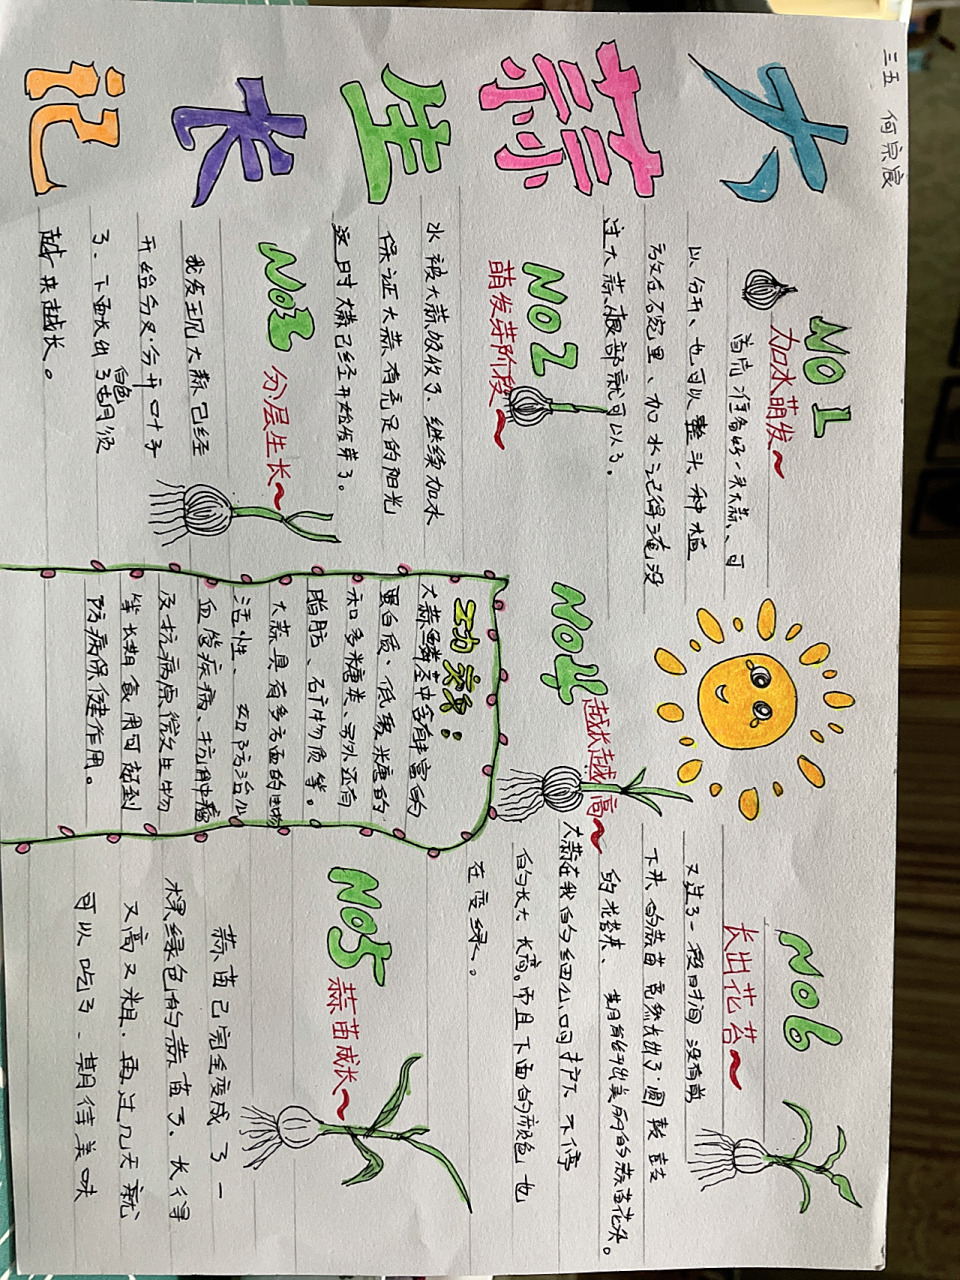 三五 何宗宸
大蒜生长记
NO1
加水萌发～
首先准备好一头大蒜、可
以分开、也可以整头种植
放在石窝里、加水记得淹没
过大蒜根部就可以了。
NO2
萌发芽阶段～
水被大蒜吸收了、继续加水
保证大蒜有充足的阳光
这时大蒜已经开始发芽了。
NO3 分层生长～
我发现大蒜已经
开始分叉.分开叶子
了、下面长出了白色胡须
越来越长。
NO4
越长越高～
大蒜在我们的细心呵护下不停
的长大长高。而且下面的颜色也
在变绿、
功效：
大蒜鳞茎中含有丰富的
蛋白质、低级糖的
和多糖类、另外还有
脂肪、矿物质等。
大蒜具有多方面的生物
活性、如防治心
血管疾病、抗肿瘤
及抗病原微生生物
等长期食用可起到
防病保健作用。
NO5
蒜苗成长～
蒜苗已完全变成了一
棵绿色的蒜苗了、长得
又高又粗.再过几天就
可以吃了、期待美味
NO6
长出花苔～
又过了一段时间 没有剪
下来的蒜苗竟然长出了圆鼓鼓
的花苔来、期待开出美丽的蒜苗花朵。